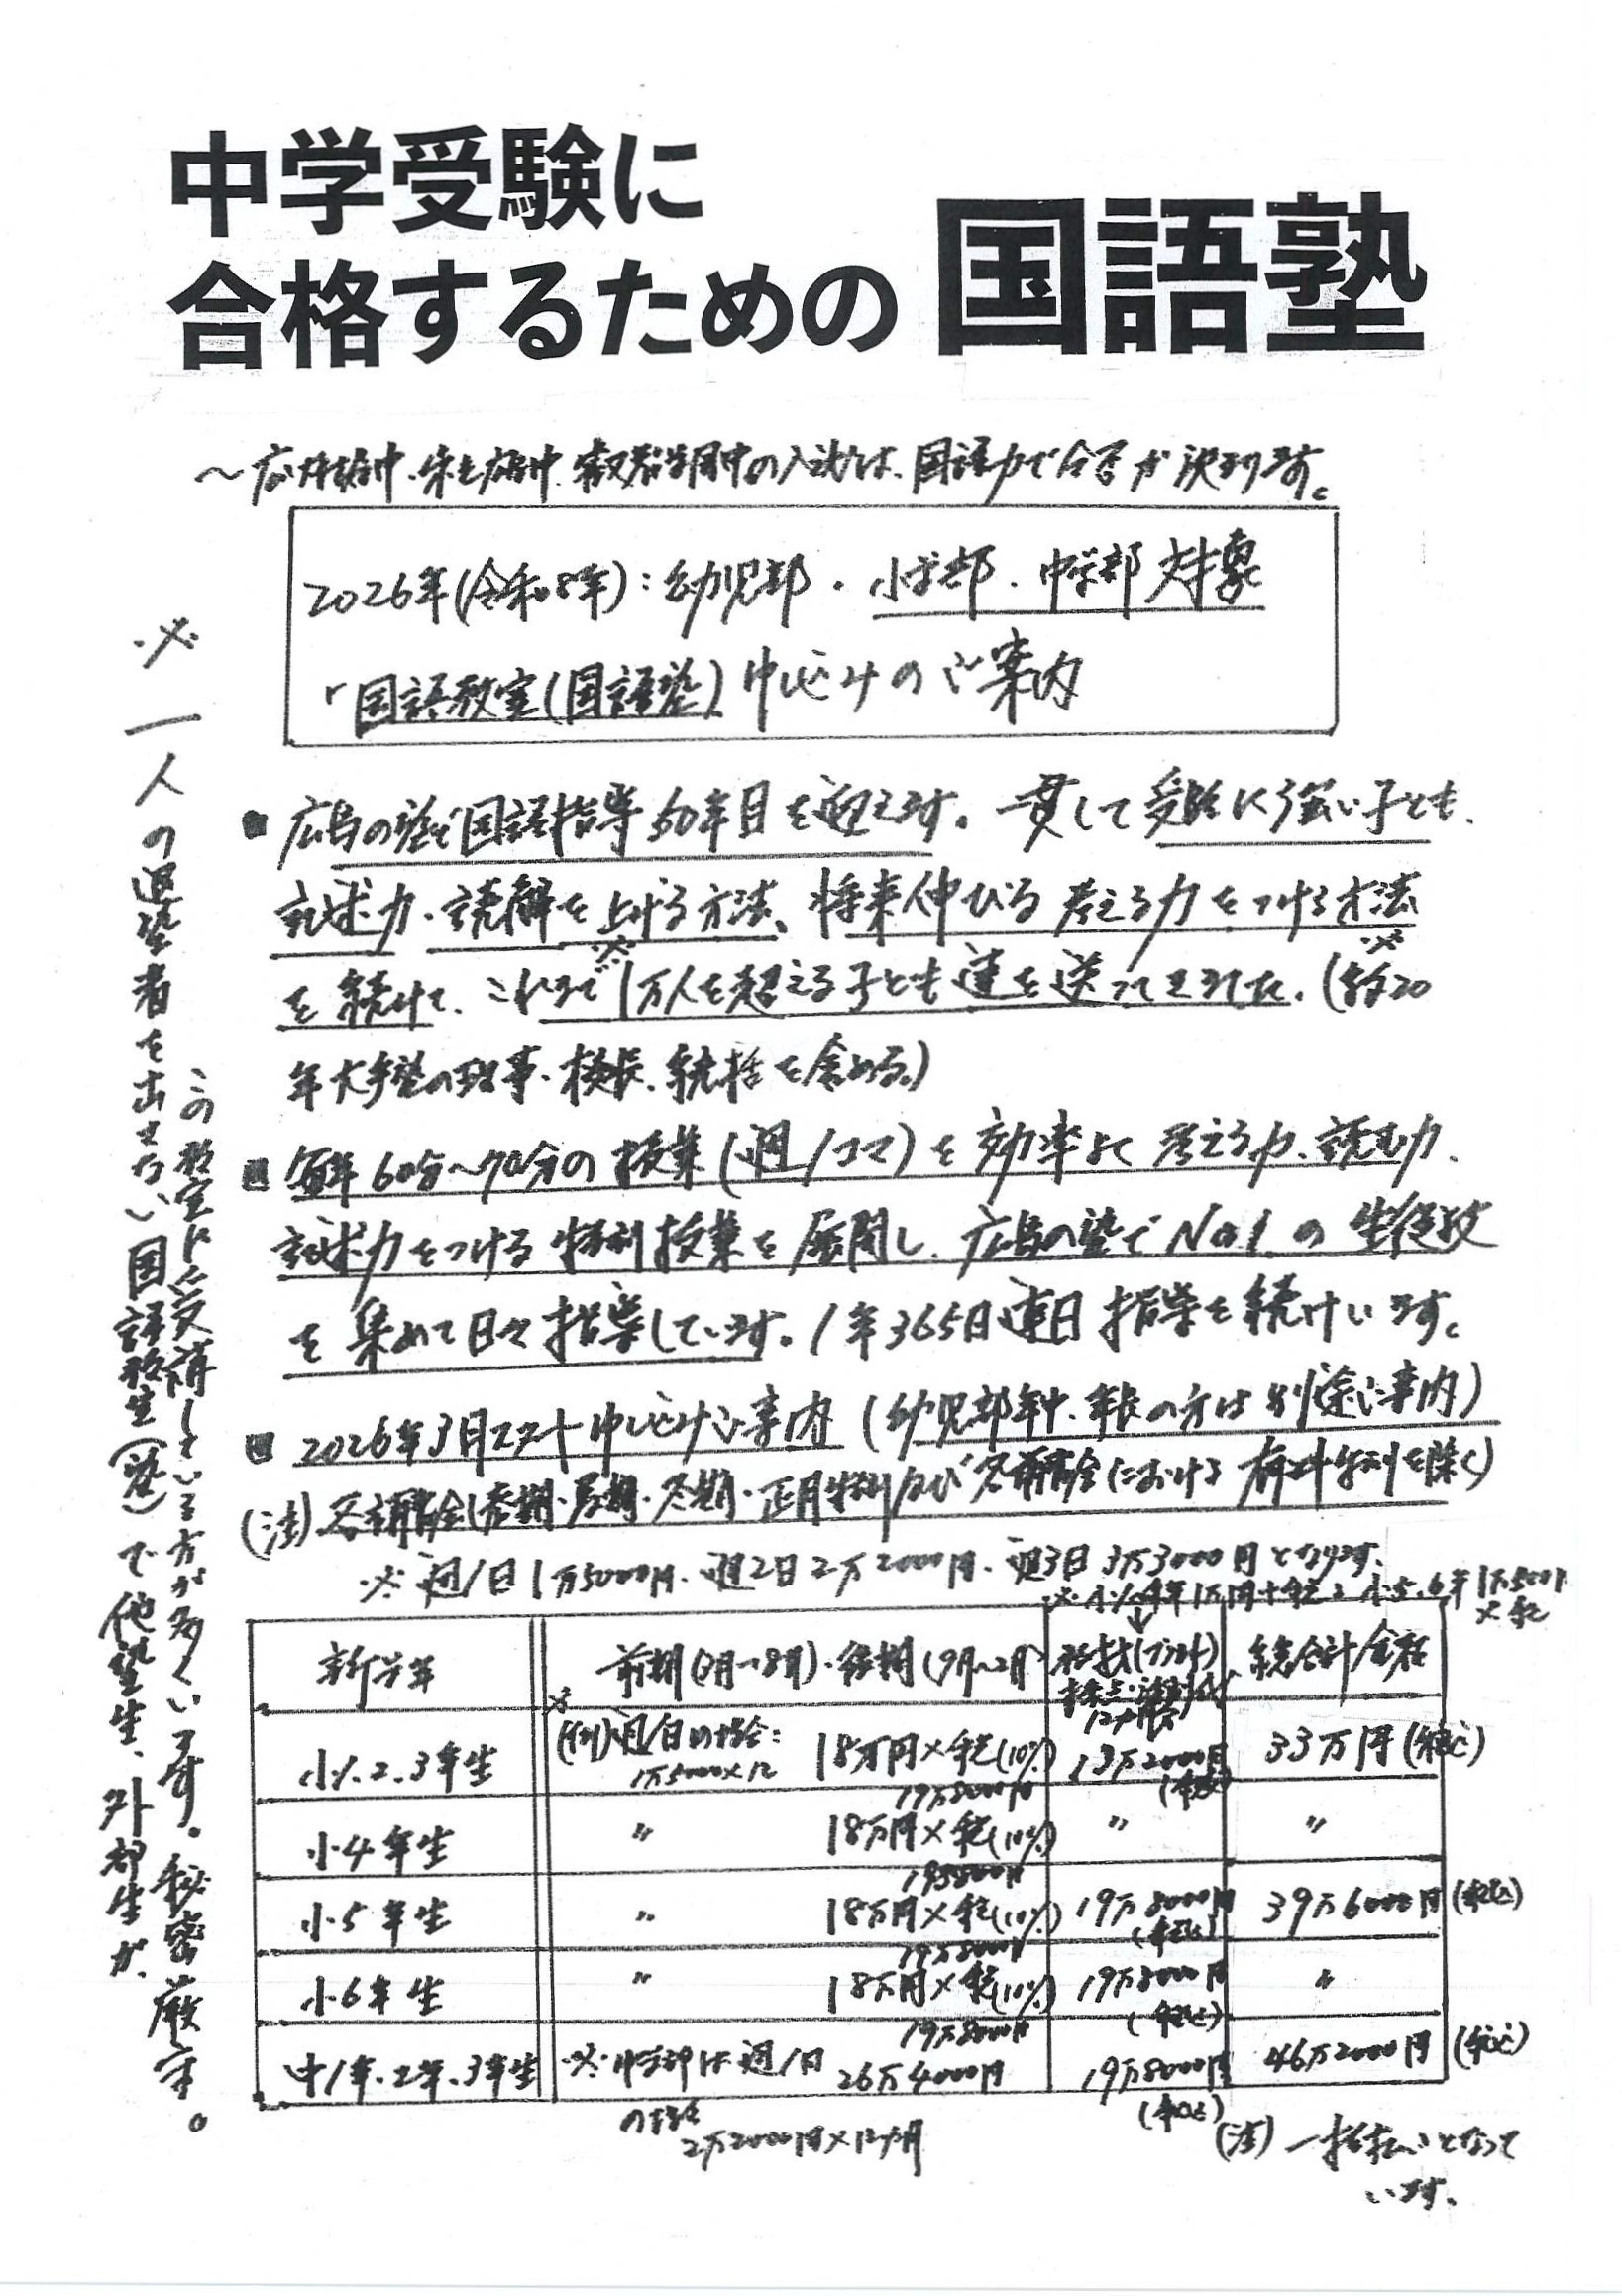 中学受験に
合格するための 国語塾
入試は、国語力で合否が決ります。
2026年(令和8年):幼児部・小学部・中学部対象
「国語教室(国語塾)申し込みのご案内
■ 広島の塾で国語指導50年目を迎えます。一貫して受験に強い子ども、
記述力・読解を上げる方法、将来伸びる考える力をつける方法
を続けて、これまで1万人を超える子ども達を送ってきました。(約20
年大手塾の理事・校長、統括を含める。)
■ 毎年60分〜70分の授業(週1コマ)を効率よく考える力、読む力、
記述力をつける特別授業を展開し、広島の塾でNo.1の生徒数
を集めて日々指導しています。1年365日連日指導を続けています。
■ 2026年3月スタート申し込みご案内(幼児部年中、年長の方は別途ご案内)
(注)各講習会(春期・夏期・冬期・正月特別及び各講習会における有料特別を除く)
※週1日1万5000円、週2日2万2000円、週3日3万3000円となります。
新学年 前期(3月〜8月)・後期(9月〜2月) 総合計金額
小1、2、3年生 (例)週1日の場合: 18万円×税(10%) 13万2000円 33万円(税込)
1万5000×12 19万8000円
小4年生 〃 18万円×税(10%) 〃 〃
19万8000円
小5年生 〃 18万円×税(10%) 19万8000円(税込) 39万6000円(税込)
19万8000円
小6年生 〃 18万円×税(10%) 19万8000円(税込) 〃
19万8000円
中1年、2年、3年生 ※中学部は週1日 26万4000円 19万8000円(税込) 46万2000円(税込)
の場合
2万2000円×12ヶ月
(注)一括払いとなって
います。
この教室に受講している方が多くいます。秘密厳守。
※一人の退塾者を出さない国語教室(塾)で他塾生、外部生が、